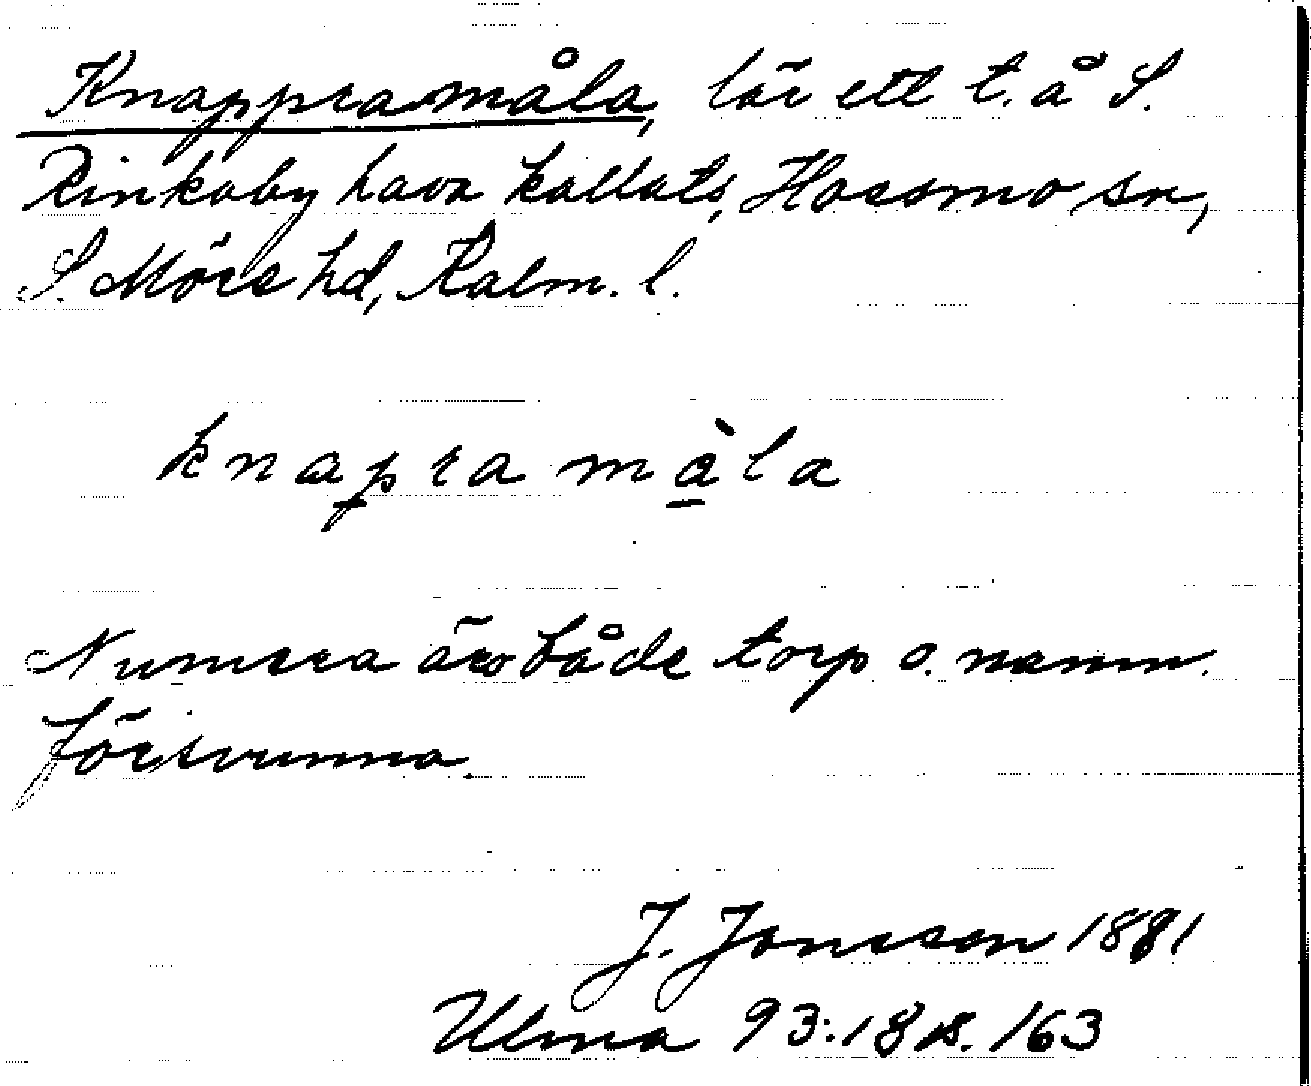 Knappramåla, lär ett t. å S.
Rinkaby hava kallats, Hossmo sn,
S. Möre hd, Kalm. l.
knapra måla
Numera äro både torp o. namn
försvunna.
J. Jonsson 1881
Ulma 93:18 s. 163